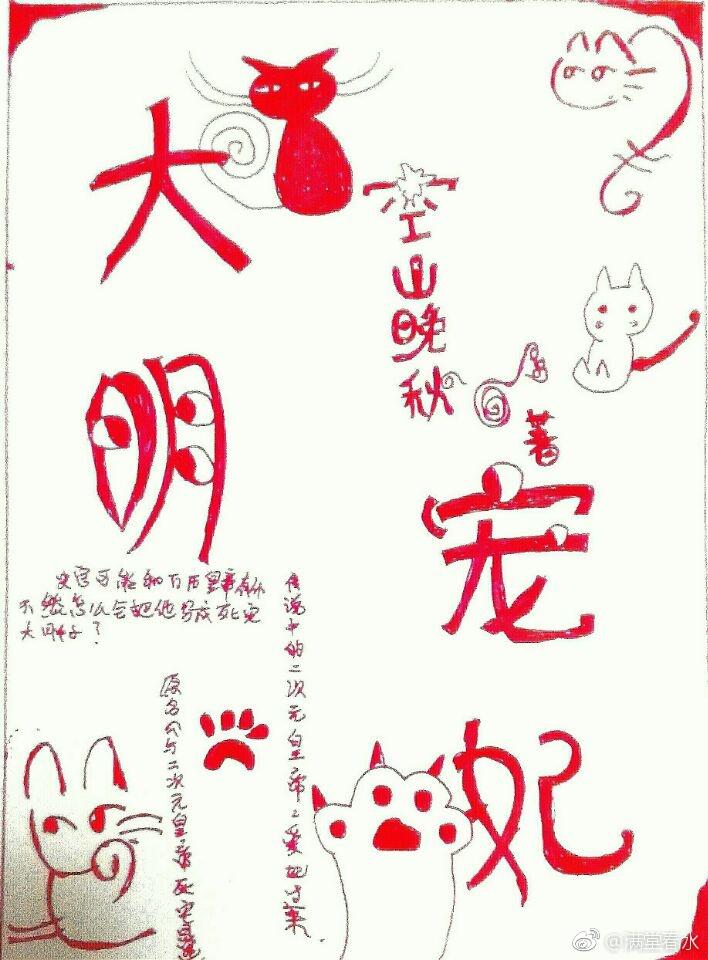 大明
宠妃
空山晚秋
著
史官可能和万历皇帝有仇
不然怎么会把他写成死宅
大胖子?
传说中的二次元皇帝:爱妃过来.
原名与二次元皇帝死宅
@满堂看水